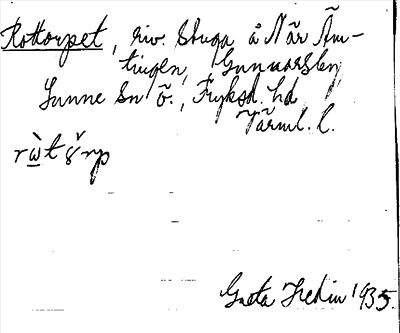 Rottorpet, riv. stuga å När Äm-
tingen, Gunnarsby
Sunne sn ö., Fryksd. hd
Värml. l.
Greta Hedin 1935.